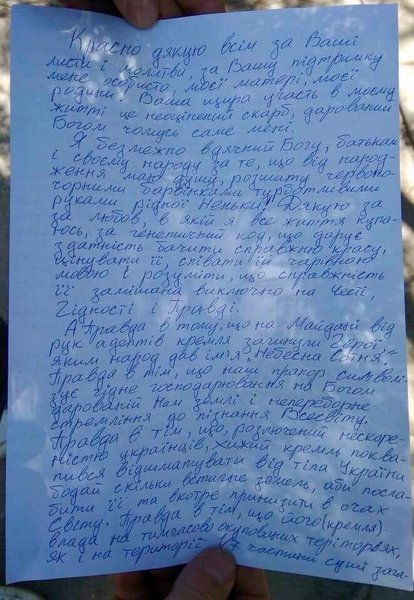 Красно дякую всім за Ваші
листи і молитви, за Вашу підтримку
мене особисто, моєї матері, моєї
родини! Ваша щира участь в моєму
житті це неоцінений скарб, дарований
Богом чомусь саме мені.
Я безмежно вдячний Богу, батькам
і своєму народу за те, що від народ-
ження маю душу, розшиту червоно-
чорними барвінками турботливими
руками рідної Неньки. Дякую за
за любов, в якій я все життя купа-
юсь, за генетичний код, що дарує
здатність бачити справжню красу,
цінувати її, співати їй чарівною
мовою і розуміти, що справжність
її замішана виключно на Честі,
Гідності і Правді.
А Правда в тому, що на Майдані від
рук адептів кремля загинули Герої,
яким народ дав ім'я "Небесна Сотня".
Правда в тім, що наш прапор символі-
зує гідне господарювання на Богом
дарованій Нам землі і непереборне
стремління до пізнання Всесвіту.
Правда в тім, що, розлючений нескоре-
ністю українців, хижий кремль поква-
пився відшматувати від тіла України
бодай скільки встигне земель, аби посла-
бити її та вкотре принизити в очах
Світу. Правда в тім, що його (кремля)
влада на тимчасово окупованих теріторіях,
як і на території 1/7 частини суші зага-